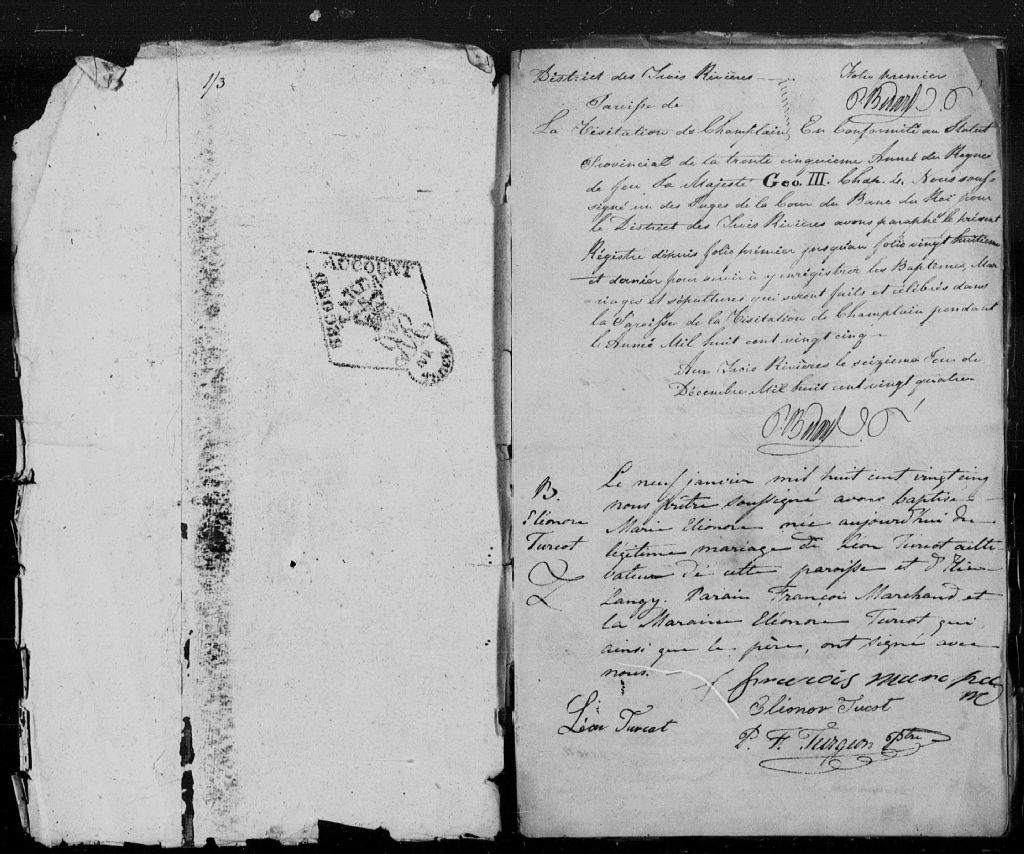 1/3
SECOND AUCOUNT
District des Trois Rivières
Folio premier
P. Bedard J.
Paroisse de
La Visitation de Champlain, En Conformité au Statut
Provincial de la trente cinquieme Année du Regne
de feu Sa Majesté Geo. III. Chap. 4. Nous sous-
signé un des Juges de la Cour du Banc du Roi pour
le District des Trois Rivières avons paraphé le présent
Régistre depuis folio prémier jusqu'au folio vingt huitieme
et dernier pour servir à y enrégistrer les Baptemes, Mar
-iages et sépultures qui seront faits et célibrés dans
la Paroisse de la Visitation de Champlain pendant
l'Année Mil huit cent vingt cinq
Aux Trois Rivières le seizieme Jour de
Décembre Mil huit cent vingt quatre
P. Bedard J.
B.
Eléonore
Turcot
Le neuf janvier mil huit cent vingt cinq
nous prêtre soussigné avons baptisé
Marie Eléonore née aujourd'hui du
légitime mariage de Léon Turcot culti-
vateur de cette paroisse et d'
Langy. Parain François Marchand et
la Maraine Eléonore Turcot qui,
ainsi que le père, ont signé avec
nous.
francois marcha
Léon Turcot
Eléonor Tucot
P. F. Turgeon Ptre